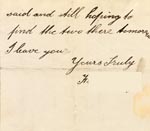 said and still hoping to
find the two there tomorrow
I leave you
Yours Truly
H.